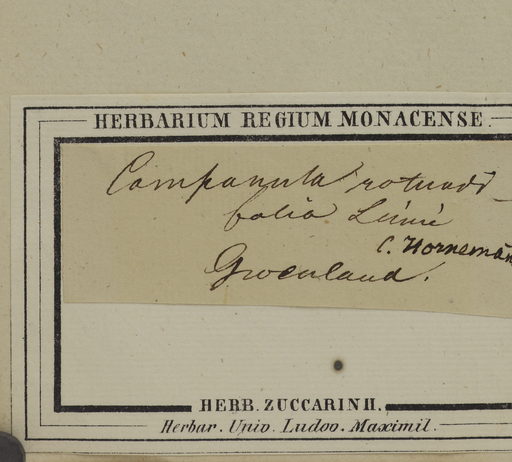 HERBARIUM REGIUM MONACENSE
Campanula rotundi-
folia Linné
C. Horneman
Groenland.
HERB. ZUCCARINII.
Herbar. Univ. Ludov. Maximil.